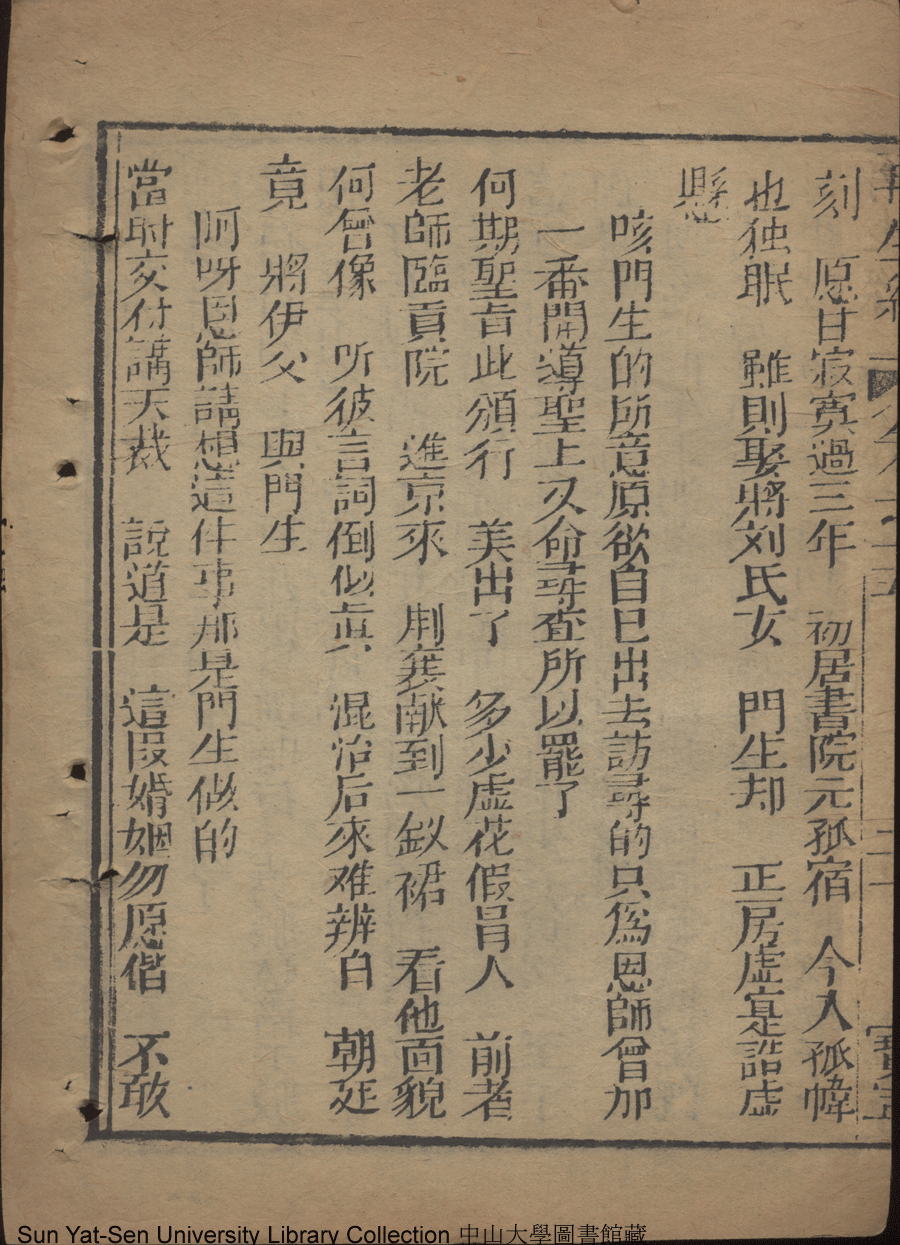 刻　愿甘寂寞過三年　初居書院元孤宿　今入孤幃
也独眠　雖則娶將刘氏女　門生却　正房虛寔誥虛
懸
咳門生的所意原欲自已出去訪尋的只為恩師曾加
一番開導聖上又命尋查所以罷了
何期聖旨此頒行　美出了　多少虛花假冐人　前者
老師臨貢院　進京來　荆襄献到一釵裙　看他面貌
何曾像　听彼言詞倒似真　混冶后來难辨白　朝廷
竟　將伊父　與門生
阿呀恩師請想這件事那是門生做的
當时交付講天裁　說道是　這叚婚姻勿愿偕　不敢
Sun Yat-Sen University Library Collection 中山大學圖書館藏